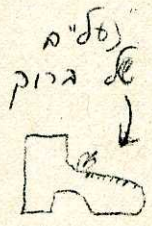 נעלי"ם
של ברוק